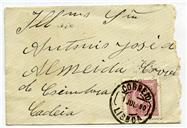 Illmo Snr
Antonio José
Almeida
de Coimbra
Cadeia
CORREIO
LISBOA